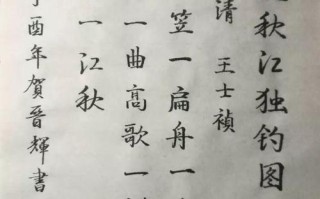 秋江独钓图
清 王士禎
笠一扁舟一
一曲高歌一
一江秋
酉年賀晋輝書